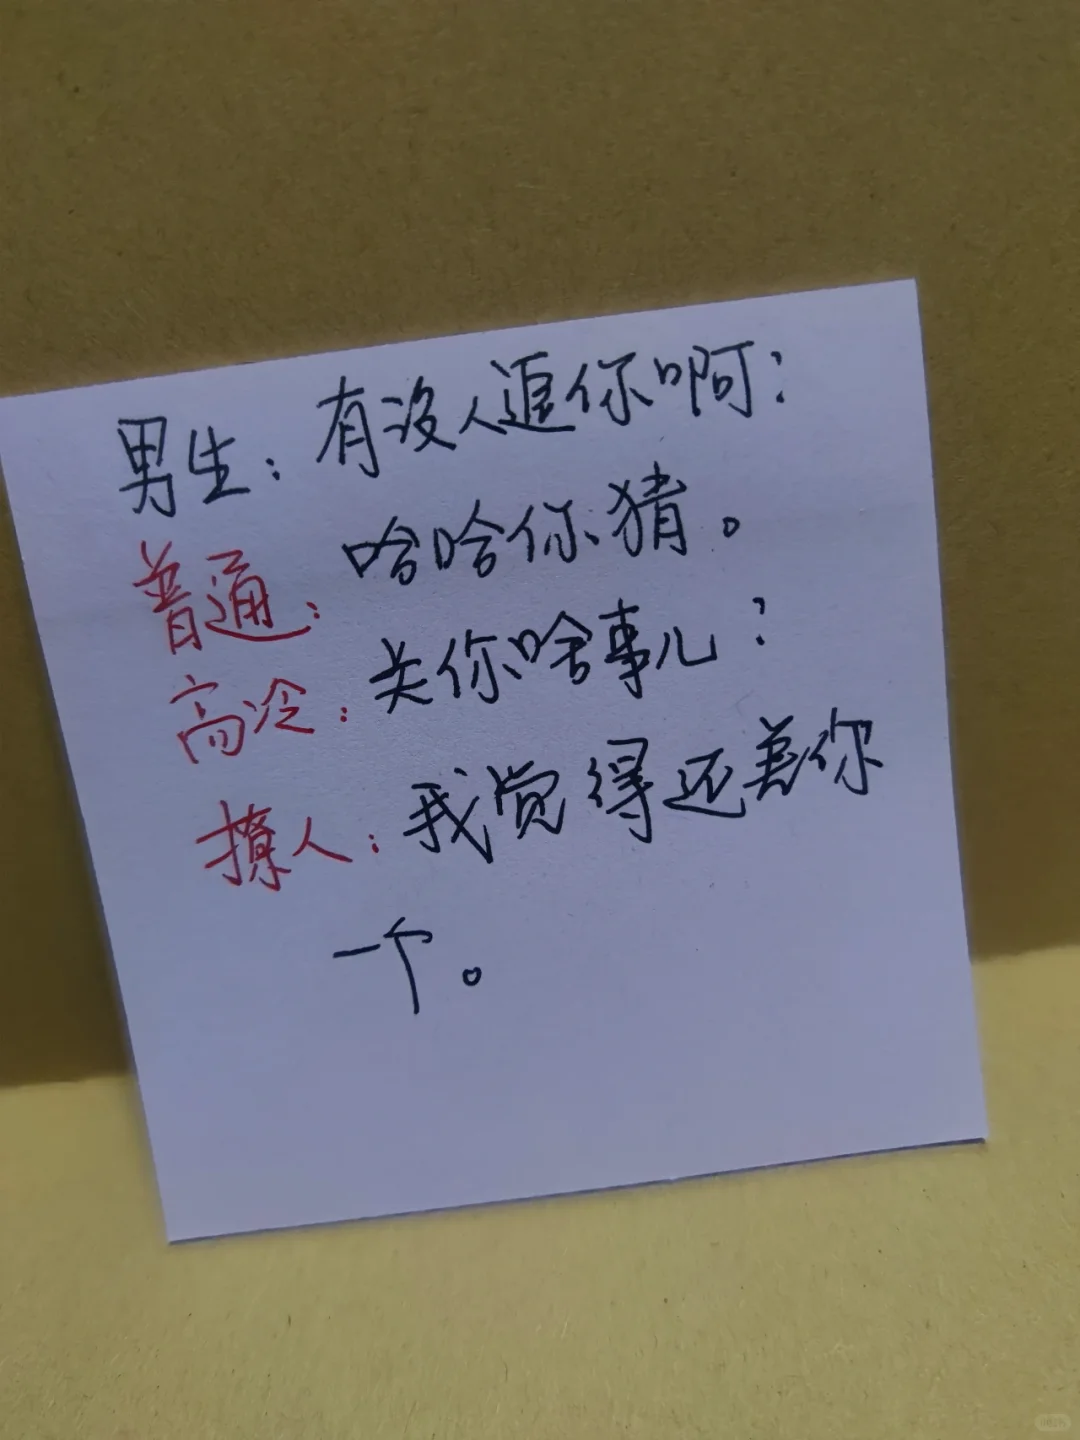 男生：有没人追你啊？
普通：哈哈你猜。
高冷：关你啥事儿？
撩人：我觉得还差你
一个。